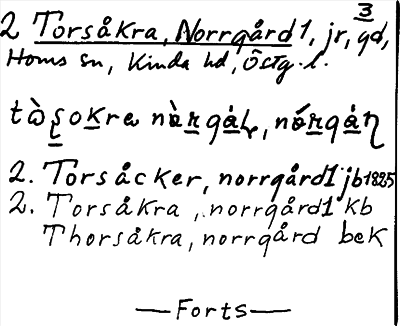 3
2 Torsåkra, Norrgård 1, jr, gd,
Horns sn, Kinda hd, Östg. l.
2. Torsåcker, norrgård 1 jb 1825
2. Torsåkra, norrgård 1 kb
Thorsåkra, norrgård bek
—Forts—